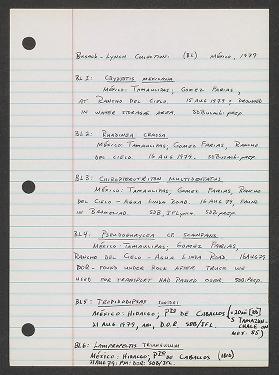 BUSACK - LYNCH COLLECTION: (BL) MÉXICO, 1979
BL1: CRYPTOTIS MEXICANA
MÉXICO: TAMAULIPAS, GOMEZ FARIAS,
AT RANCHO DEL CIELO. 15 AUG 1979; DROWNED
IN WATER STORAGE AREA. SDBUSACK: PREP.
BL2: RHADINEA CRASSA
MÉXICO: TAMAULIPAS, GOMEZ FARIAS, RANCHO
DEL CIELO. 16 AUG 1979. SDBUSACK: PREP.
BL3: CHIROPTEROTRITON MULTIDENTATUS
MÉXICO: TAMAULIPAS, GOMEZ FARIAS, RANCHO
DEL CIELO - AGUA LINDA ROAD. 16 AUG 79, FOUND
IN BROMELIAD. SDB, JFLYNCH. SDB, PREP.
BL4: PSEUDOEURYCEA CF. SCANDENS
MÉXICO: TAMAULIPAS, GOMEZ FARIAS,
RANCHO DEL CIELO - AGUA LINDA ROAD. 16 AUG 79
DOR - FOUND UNDER ROCK AFTER TRUCK WE
USED FOR TRANSPORT HAD PASSED OVER. SDB, PREP.
BL5: TROPIDODIPSAS
MÉXICO: HIDALGO, PTO DE CABALLOS
21 AUG 1979, AM, D.O.R. SDB/JFL.
BL6: LAMPROPELTIS TRIANGULUM
MÉXICO: HIDALGO; PTO DE CABALLOS
21 AUG 79; PM: DOR: SDB/JFL